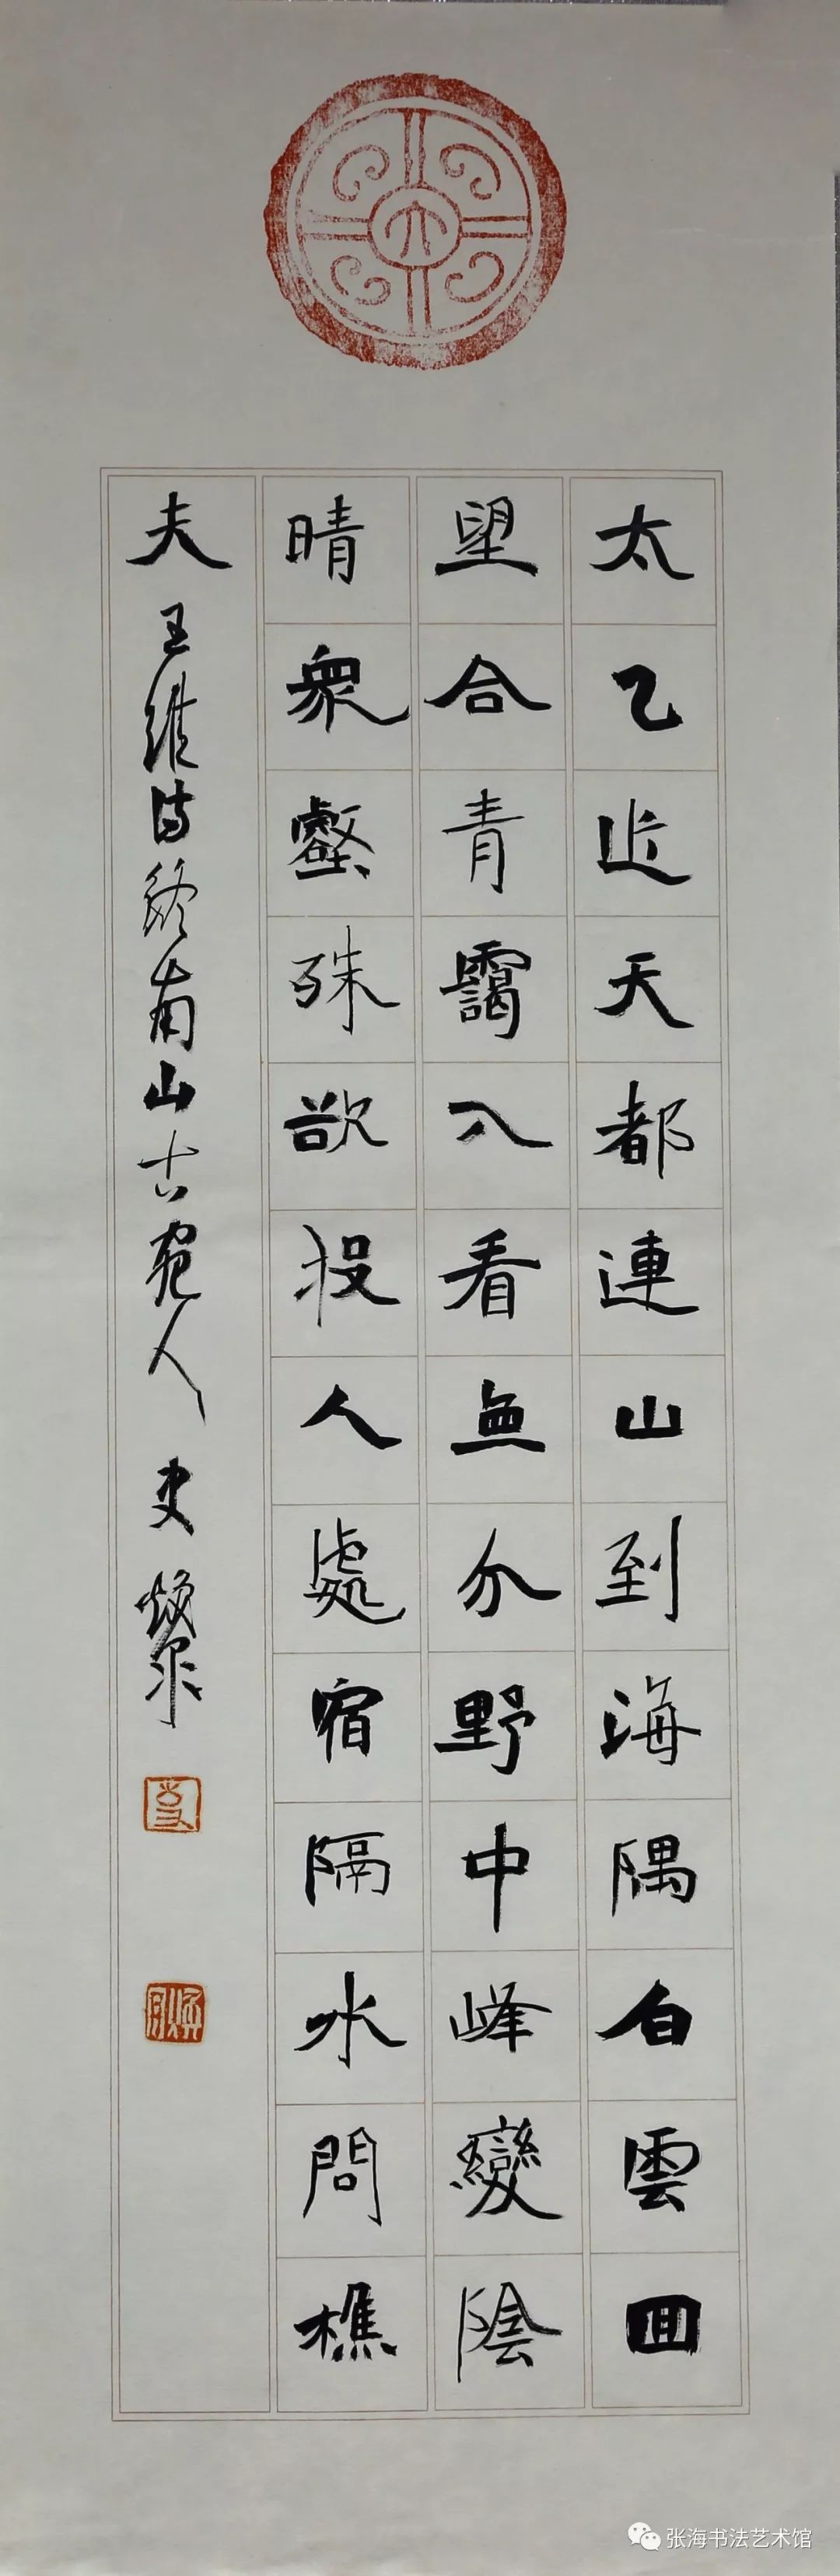 太乙近天都連山到海隅白雲囬
望合青靄入看無分野中峰變陰
晴衆壑殊欲投人處宿隔水問樵
夫 王維詩終南山 古宛人 史
张海书法艺术馆